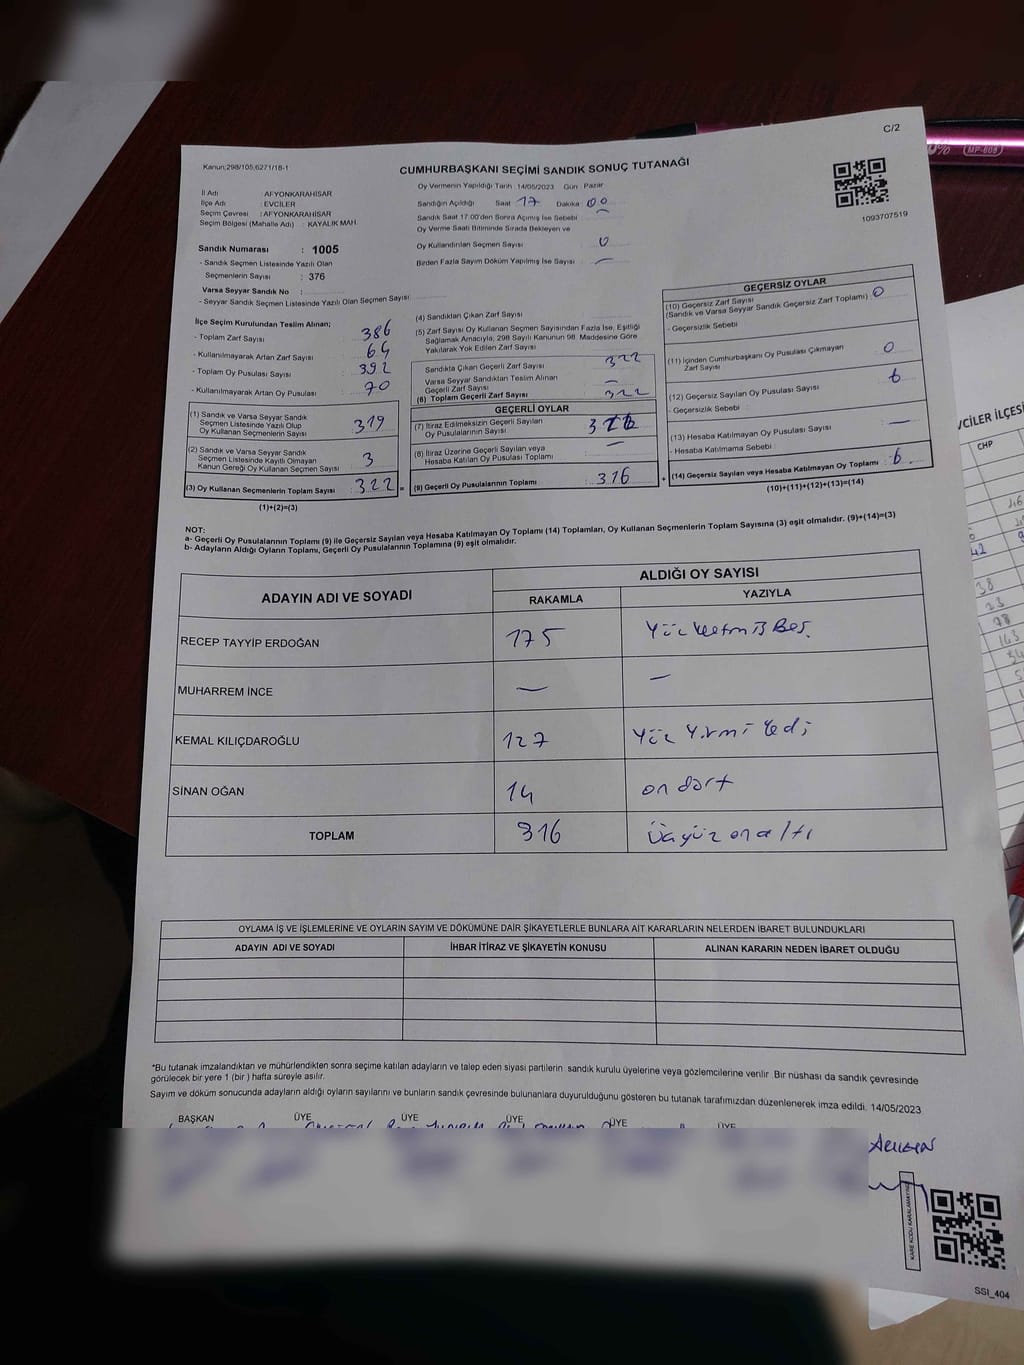 C/2
Kanun:298/105,6271/18-1
CUMHURBAŞKANI SEÇİMİ SANDIK SONUÇ TUTANAĞI
1093707519
İl Adı : AFYONKARAHİSAR
İlçe Adı : EVCİLER
Seçim Çevresi : AFYONKARAHİSAR
Seçim Bölgesi (Mahalle Adı) : KAYALIK MAH.
Sandık Numarası : 1005
- Sandık Seçmen Listesinde Yazılı Olan
Seçmenlerin Sayısı : 376
Varsa Seyyar Sandık No :
- Seyyar Sandık Seçmen Listesinde Yazılı Olan Seçmen Sayısı
Oy Vermenin Yapıldığı Tarih 14/05/2023 Gün Pazar
Sandığın Açıldığı Saat 17 Dakika 00
Sandık Saat 17:00'den Sonra Açımış İse Sebebi —
Oy Verme Saati Bitiminde Sırada Bekleyen ve
Oy Kullandırılan Seçmen Sayısı 0
Birden Fazla Sayım Döküm Yapılmış İse Sayısı —
İlçe Seçim Kurulundan Teslim Alınan;
- Toplam Zarf Sayısı 386
- Kullanılmayarak Artan Zarf Sayısı 64
- Toplam Oy Pusulası Sayısı 392
- Kullanılmayarak Artan Oy Pusulası 70
(1) Sandık ve Varsa Seyyar Sandık
Seçmen Listesinde Yazılı Olup
Oy Kullanan Seçmenlerin Sayısı 319
(2) Sandık ve Varsa Seyyar Sandık
Seçmen Listesinde Kayıtlı Olmayan
Kanun Gereği Oy Kullanan Seçmen Sayısı 3
(3) Oy Kullanan Seçmenlerin Toplam Sayısı 322 =
(1)+(2)=(3)
(4) Sandıktan Çıkan Zarf Sayısı
(5) Zarf Sayısı Oy Kullanan Seçmen Sayısından Fazla İse, Eşitliği
Sağlamak Amacıyla, 298 Sayılı Kanunun 98. Maddesine Göre
Yakılarak Yok Edilen Zarf Sayısı
Sandıkta Çıkan Geçerli Zarf Sayısı 322
Varsa Seyyar Sandıktan Teslim Alınan
Geçerli Zarf Sayısı —
(6) Toplam Geçerli Zarf Sayısı 322
GEÇERLİ OYLAR
(7) İtiraz Edilmeksizin Geçerli Sayılan
Oy Pusulalarının Sayısı 316
(8) İtiraz Üzerine Geçerli Sayılan veya
Hesaba Katılan Oy Pusulası Toplamı —
(9) Geçerli Oy Pusulalarının Toplamı 316 +
GEÇERSİZ OYLAR
(10) Geçersiz Zarf Sayısı
(Sandık ve Varsa Seyyar Sandık Geçersiz Zarf Toplamı) 0
- Geçersizlik Sebebi
(11) İçinden Cumhurbaşkanı Oy Pusulası Çıkmayan
Zarf Sayısı 0
(12) Geçersiz Sayılan Oy Pusulası Sayısı 6
- Geçersizlik Sebebi
(13) Hesaba Katılmayan Oy Pusulası Sayısı —
- Hesaba Katılmama Sebebi :
(14) Geçersiz Sayılan veya Hesaba Katılmayan Oy Toplamı 6
(10)+(11)+(12)+(13)=(14)
NOT:
a- Geçerli Oy Pusulalarının Toplamı (9) ile Geçersiz Sayılan veya Hesaba Katılmayan Oy Toplamı (14) Toplamları, Oy Kullanan Seçmenlerin Toplam Sayısına (3) eşit olmalıdır. (9)+(14)=(3)
b- Adayların Aldığı Oyların Toplamı, Geçerli Oy Pusulalarının Toplamına (9) eşit olmalıdır.
ADAYIN ADI VE SOYADI ALDIĞI OY SAYISI
RAKAMLA YAZIYLA
RECEP TAYYİP ERDOĞAN 175 Yüz yetmiş Beş.
MUHARREM İNCE — —
KEMAL KILIÇDAROĞLU 127 Yüz Yirmi Yedi
SİNAN OĞAN 14 on dört
TOPLAM 316 Üçyüz on altı
OYLAMA İŞ VE İŞLEMLERİNE VE OYLARIN SAYIM VE DÖKÜMÜNE DAİR ŞİKAYETLERLE BUNLARA AİT KARARLARIN NELERDEN İBARET BULUNDUKLARI
ADAYIN ADI VE SOYADI İHBAR İTİRAZ VE ŞİKAYETİN KONUSU ALINAN KARARIN NEDEN İBARET OLDUĞU
*Bu tutanak imzalandıktan ve mühürlendikten sonra seçime katılan adayların ve talep eden siyasi partilerin sandık kurulu üyelerine veya gözlemcilerine verilir. Bir nüshası da sandık çevresinde
görülecek bir yere 1 (bir) hafta süreyle asılır.
Sayım ve döküm sonucunda adayların aldığı oyların sayılarını ve bunların sandık çevresinde bulunanlara duyurulduğunu gösteren bu tutanak tarafımızdan düzenlenerek imza edildi. 14/05/2023
BAŞKAN ÜYE ÜYE ÜYE ÜYE ÜYE
KARE KODU KARALAMAYINIZ
SSI_404
VCİLER İLÇESİ
CHP
42
38
23